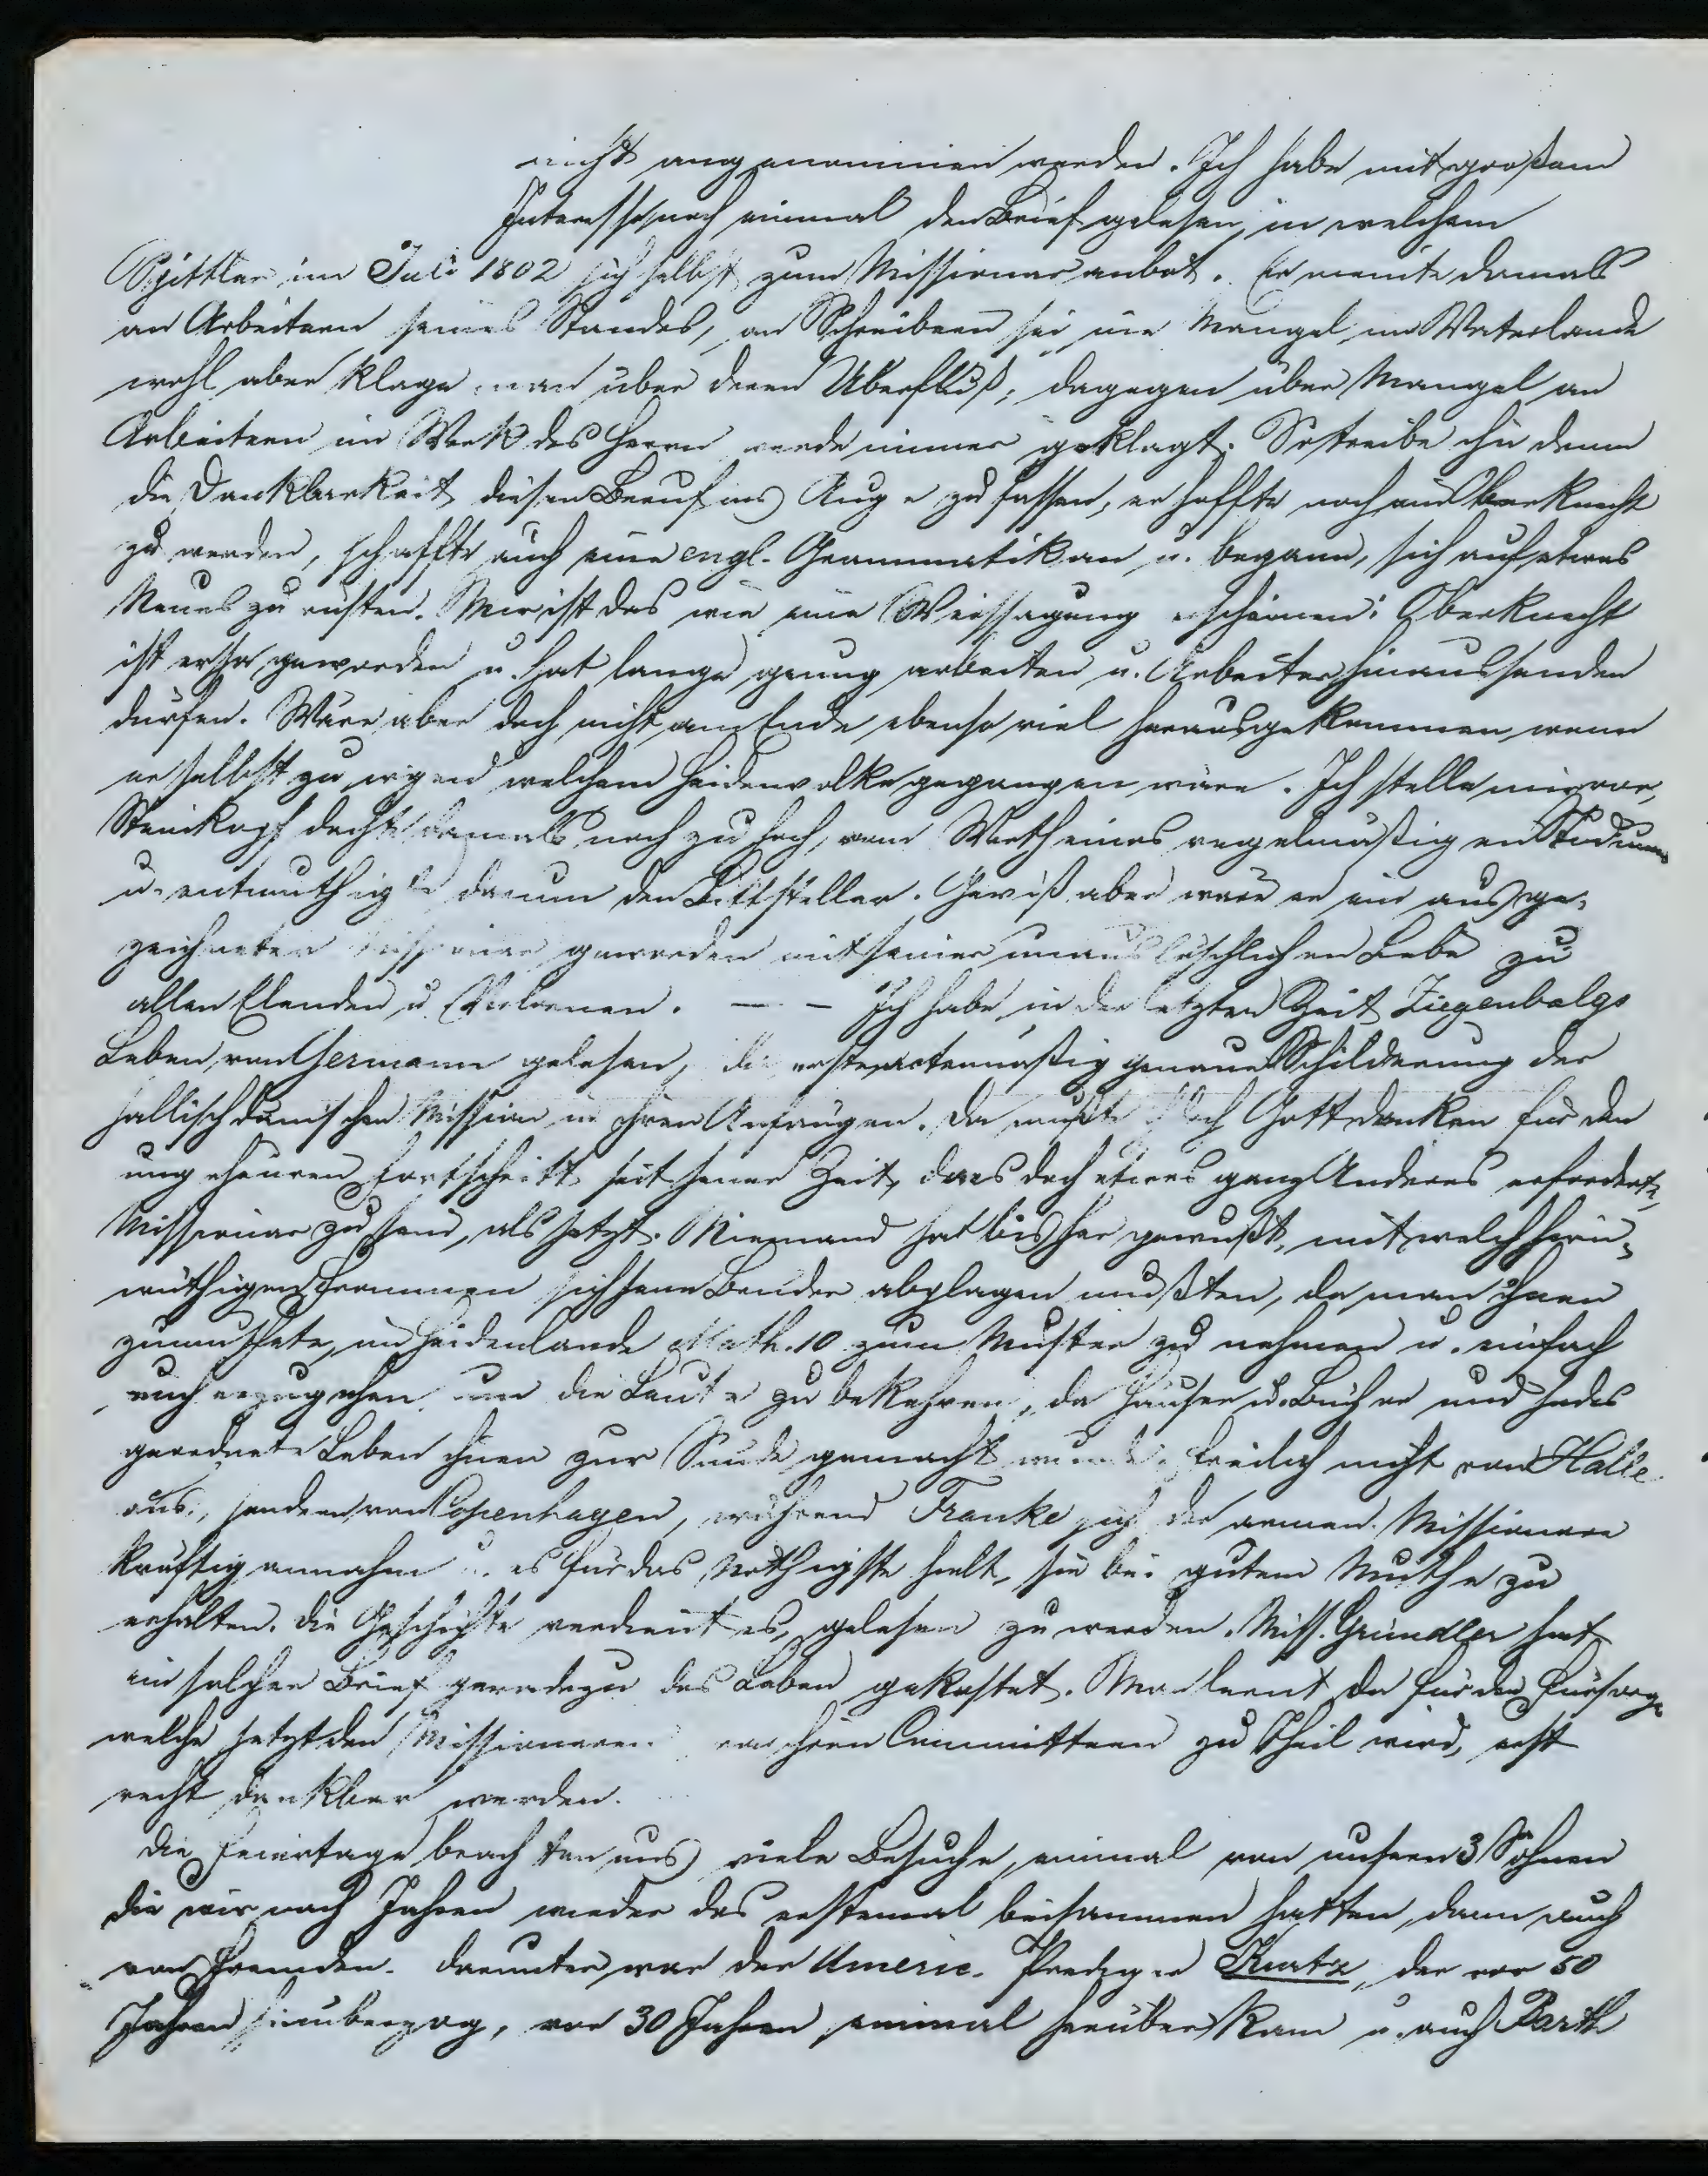 nicht angenommen werden. Ich habe mit großem
Interesse noch einmal den Brief gelesen, in welchem
Spittler im Juli 1802 sich selbst zum Missionar anbot. Er meinte damals
an Arbeitern seines Standes, an Schreibern sei nie Mangel im Vaterlande
wohl aber klage man über deren Überfluß, dagegen über Mangel an
Arbeitern im Werk des Herrn werde immer geklagt. So treibe ihn denn
die Dankbarkeit diesen Beruf ins Auge zu fassen, er hoffte noch ein Oberknecht
zu werden, schaffte auch eine engl. Grammatik an u. begann, sich auf etwas
Neues zu rüsten. Mir ist das wie eine Weissagung erschienen: Oberknecht
ist er ja geworden u. hat lange genug arbeiten u. Arbeiter hinaussenden
dürfen. Wäre aber doch nicht am Ende ebenso viel herausgekommen wenn
er selbst zu irgend welchem Heidenvolke gegangen wäre. Ich stelle mir vor,
Steinkopf dachte damals noch zu hoch, vom Werth eines regelmäßigen Studiums
u. entmuthigte darum den Bittsteller. Gewiß aber wäre er ein ausge-
zeichneter Missionar geworden mit seiner unauslöschlichen Liebe zu
allen Elenden u. Verlornen. — – Ich habe in der letzten Zeit Ziegenbalgs
Leben von Germann gelesen, die erste actenmäßig genaue Schilderung der
hallisch dänischen Mission in ihren Anfängen. Da mußte ich Gott danken für den
ungeheuren Fortschritt seit jener Zeit, da es doch etwas ganz Anderes erforderte,
Missionar zu sein, als jetzt. Niemand hat bisher gewußt, mit welch hirn-
wüthigen Frommen sich jene Brüder abplagen mußten, da man ihnen
zumuthete, im Heidenlande Math. 10 zum Muster zu nehmen u. einfach
umherzugehen um die Leute zu bekehren, da Häuser u. Bücher und jedes
geordnete Leben ihnen zur Sünde gemacht wurde. Freilich nicht von Halle
aus, sondern von Copenhagen, während Franke sich der armen Missionare
kräftig annahm u. es für das Nöthigste hielt, sie bei gutem Muthe zu
erhalten. Die Geschichte verdient es, gelesen zu werden. Miss. Gründler hat
ein solcher Brief geradezu das Leben gekostet. Man lernt da für die Fürsorge
welche jetzt den Missionaren von ihren Committeen zu Theil wird, erst
recht dankbar werden.
Die Feiertage brachten uns viele Besuche, einmal von unsern 3 Söhnen
die wir nach Jahren wieder das erstemal beisammen hatten, dann auch
von Fremden. Darunter war der Americ. Prediger Kurtz, der vor 50
Jahren hinüberzog, vor 30 Jahren einmal herüber kam u. auch Barth